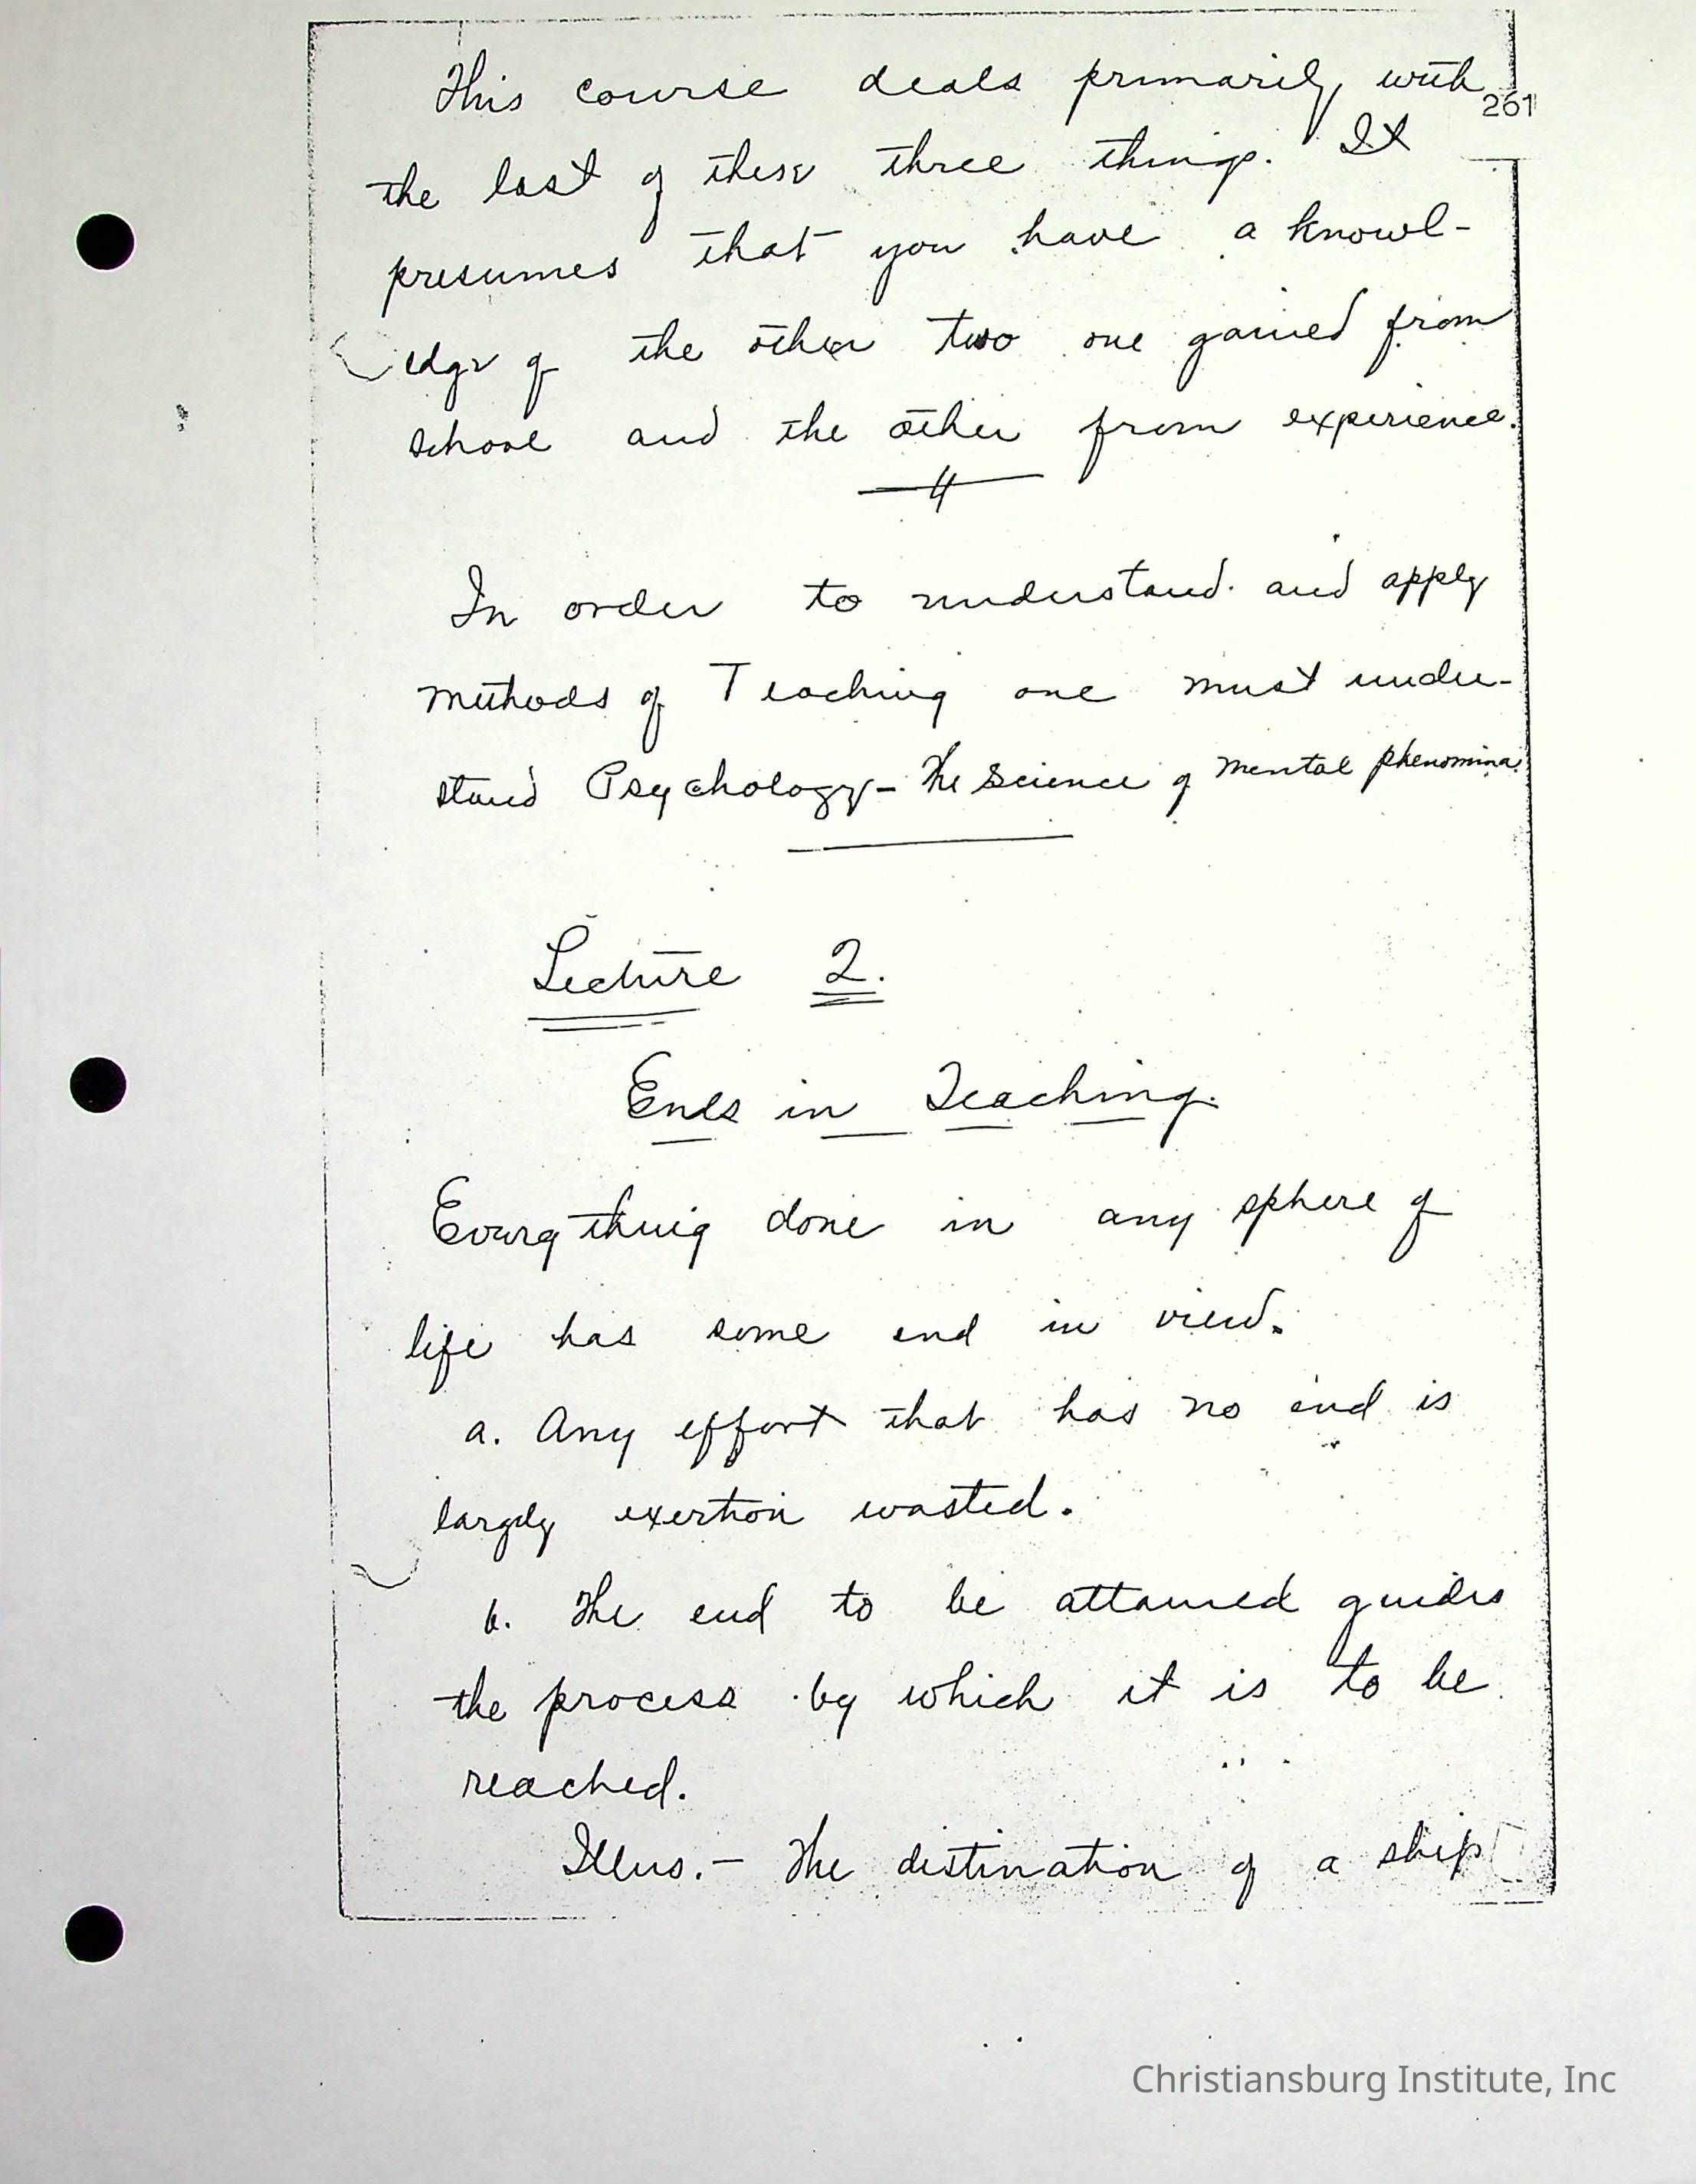 This course deals primarily with
261
the last of these three things. It
presumes that you have a knowl-
edge of the other two one gained from
school and the other from experience.
In order to understand and apply
methods of Teaching one must under-
stand Psychology - The science of mental phenomina.
Lecture 2.
Ends in Teaching.
Every thing done in any sphere of
life has some end in view.
a. Any effort that has no end is
largely exertion wasted.
b. The end to be attained guides
the process by which it is to be
reached.
Illus. - The distination of a ship
Christiansburg Institute, Inc